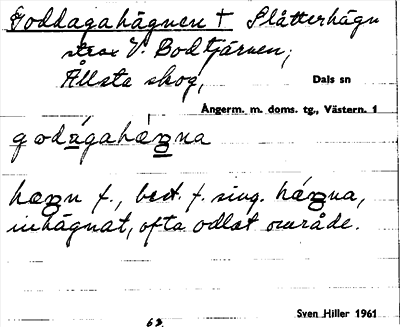 Goddagahägnen + Slåtterhägn
strax V. Bodtjärnen,
Ållsta skog,
Dals sn
Ångerm. m. doms. tg., Västern. 1
f., best. f. sing.
inhägnat, ofta odlat område.
Sven Hiller 1961
62.